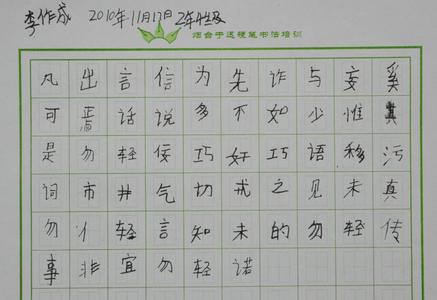 李作成 2010年11月17日 2年4班级
烟台于硬笔书法培训
凡出言信为先诈与妄奚
可焉话说多不如少惟
是勿轻佞巧奸巧语移污
词市井气切戒之见未真
勿亻轻言知未的勿轻传
事非宜勿轻诺